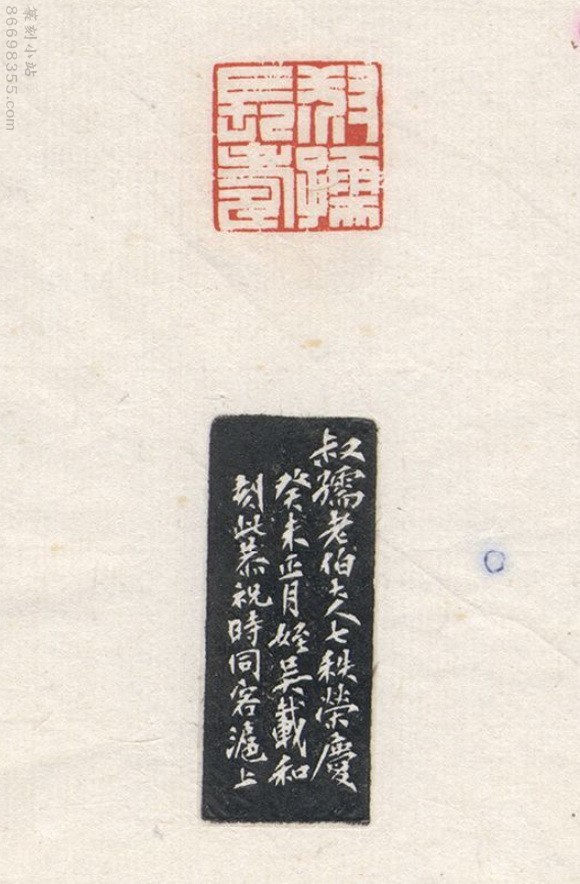 篆刻小站
86698355.com
叔孺
長壽
叔孺老伯大人七秩榮慶
癸未正月姪吳載和
刻此恭祝時同客滬上